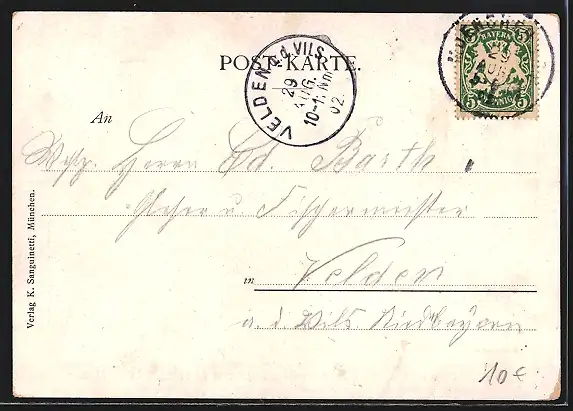 POST KARTE.
VELDEN a.d. VILS
29
AUG.
10-11 Vm
02.
BAYERN
5 5
PFENNIG
29
AUG
An
Herrn Ed. Barth
u. Fischermeister
in Velden
a. d. Vils Niedbayern
Verlag K. Sanguinetti, München.
10€